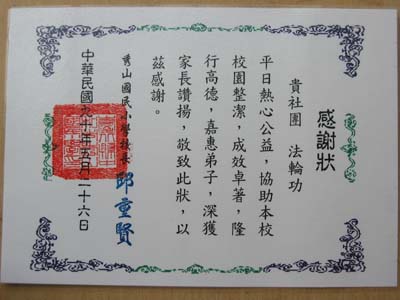 感謝狀
貴社團 法輪功
平日熱心公益，協助本校
校園整潔，成效卓著，隆
行高德，嘉惠弟子，深獲
家長讚揚，敬致此狀，以
茲感謝。
秀山國民小學校長 邱重賢
中華民國九十年五月二十六日